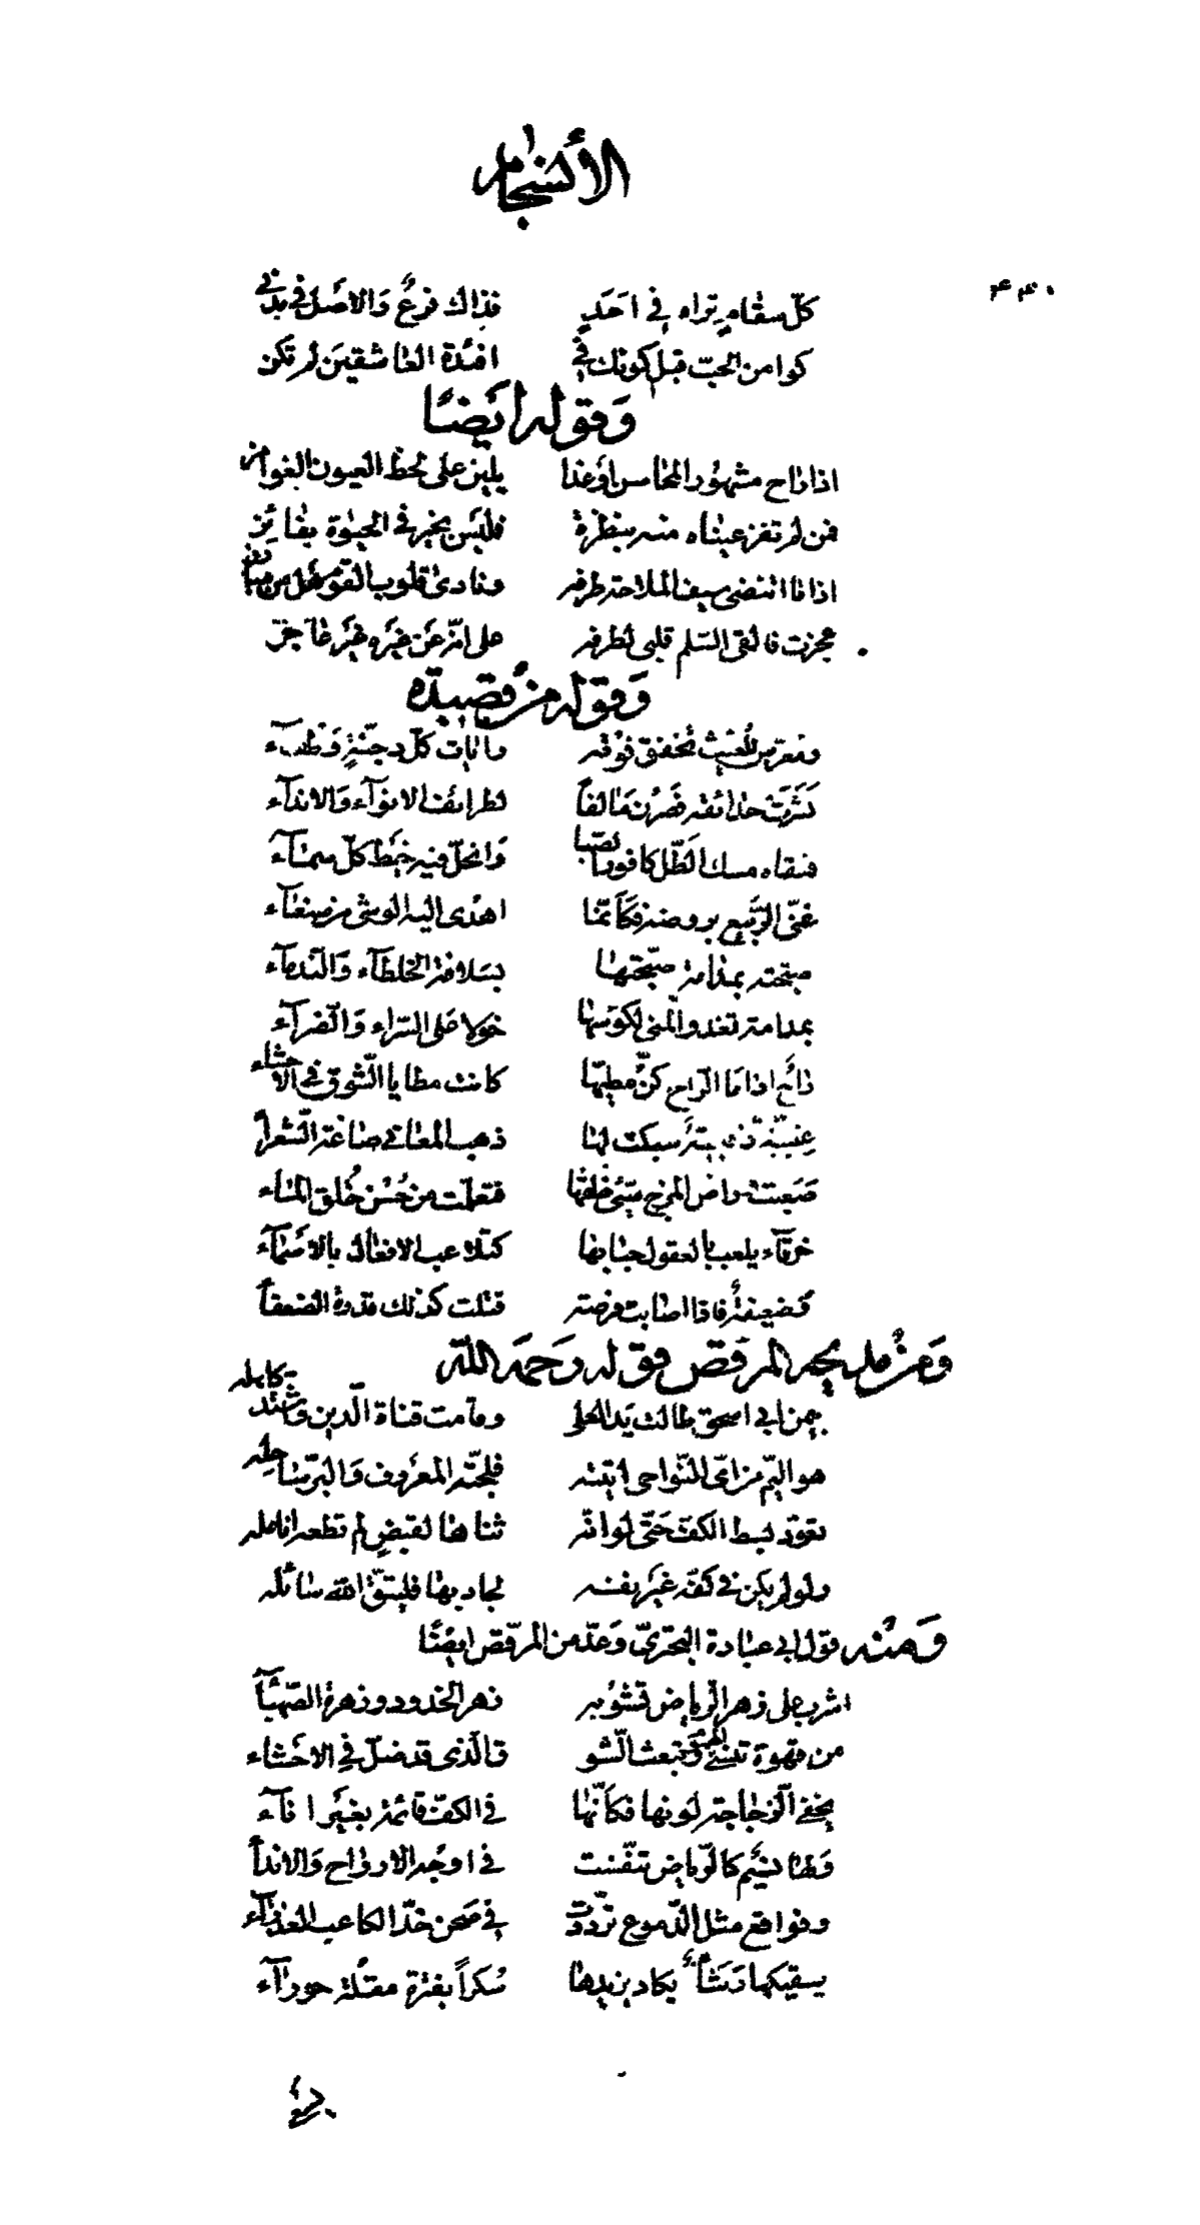 الانسجام
٤٤٠
كلّ سقام تراه في احَدٍ فذاك فرعٌ وَالاصْل في بدني
كوامن الحبّ قبل كونك في افئدة العاشقين لم تكن
وَقوله ايَضًا
اذا راح مشهور المحاسن او غدا يلين على لحظ العيون الغوامز
فمن لم تفز عيناه منه بنظرة فليَس بخير في الحيوة بفائز
اذا ما انتضى سيف الملاحة طرفه ونادى قلوب القوم هل من مبارز
عجزت فالقى السّلم قلبي لطرفه على انّه عَن غيَره غيَر عاجز
وَقوله من قصيدة
ومعرس للغيث تخفق فوقه رايات كلّ دجنّةٍ وَطفآء
نَشَرَتْ حدائقه فصَرن مَآلفاً لطرائف الانوآء وَالاندآء
فسقاه مسك الطّلّ كافور الصّبا وَانحلّ فيه خيَط كلّ سمآء
غنّى الرّبيع بروضه فكَأنّما اهدى اليه الوشى من صنعآء
صبّحته بمدامة صبّحتها بسلافة الخلطآء وَالنّدمآء
بمدامة تغدو المنى لكؤسها خولا عَلى السّراء وَالضّرآء
راح اذا مَا الرّاح كنّ مطيّها كانت مطايا الشّوق في الاحشاء
عِنبيّة ذهبيّة سبكت لها ذهب المعاني صاغة الشّعرآ
صَعبت وراض المزج سيّئ خلقها فتعلّمت من حُسْن خُلق المآء
خرقآء يلعب بالعقول حبابها كتلاعب الافعال بالاسَمآء
وَضعيفةٌ فاذا اصابت فرصة قتلت كذلك قدرة الضعفآ
وَمن مديحه المرقص قوله رحمَه اللّه
بيمن ابي اسحق طالت يَد العلى وقامت قناة الدّين واشتدّ كاهله
هو اليمّ من ايّ النّواحي اتيته فلجّته المعرَوف وَالبرّ ساحله
تعوّد بسط الكفّ حَتّى لو انّه ثناها لقبضٍ لم تطعه انامله
ولو لم يكن في كفّه غيَر نفسه لجاد بها فليتّق اللّه سائله
وَمنه قول ابي عبادة البحتريّ وَعدّ من المرقّص ايضًا
اشرب على زهر الرّياض يشوبه زهر الخدود وزهرة الصّهبآ
من قهوة تنسي الهموم وتبعث الشّو ق الّذي قد ضلّ في الاحَشاء
يخفي الزّجاجة لونها فكأنّها في الكفّ قائمة بغيَر انآء
وَلها نسيَم كالرّياض تنفّست في اوجُه الارواح وَالاندآ
وفواقع مثل الدّموع تردّدت في صَحن خدّ الكاعب العذرآء
يسقيكها رَشَأٌ يكاد يزيدها سُكراً بفترة مقلة حورآء